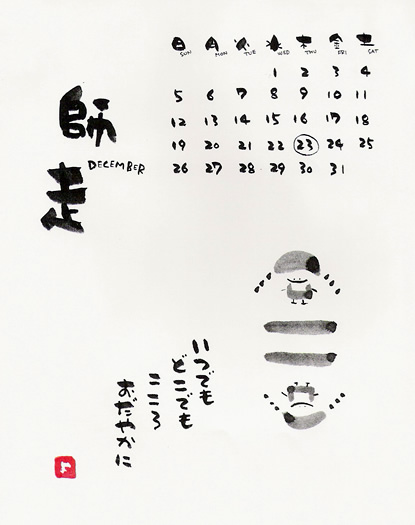 師走
DECEMBER
日 月 火 水 木 金 土
SUN MON TUE WED THU FRI SAT
1 2 3 4
5 6 7 8 9 10 11
12 13 14 15 16 17 18
19 20 21 22 23 24 25
26 27 28 29 30 31
いつでも
どこでも
こころ
おだやかに